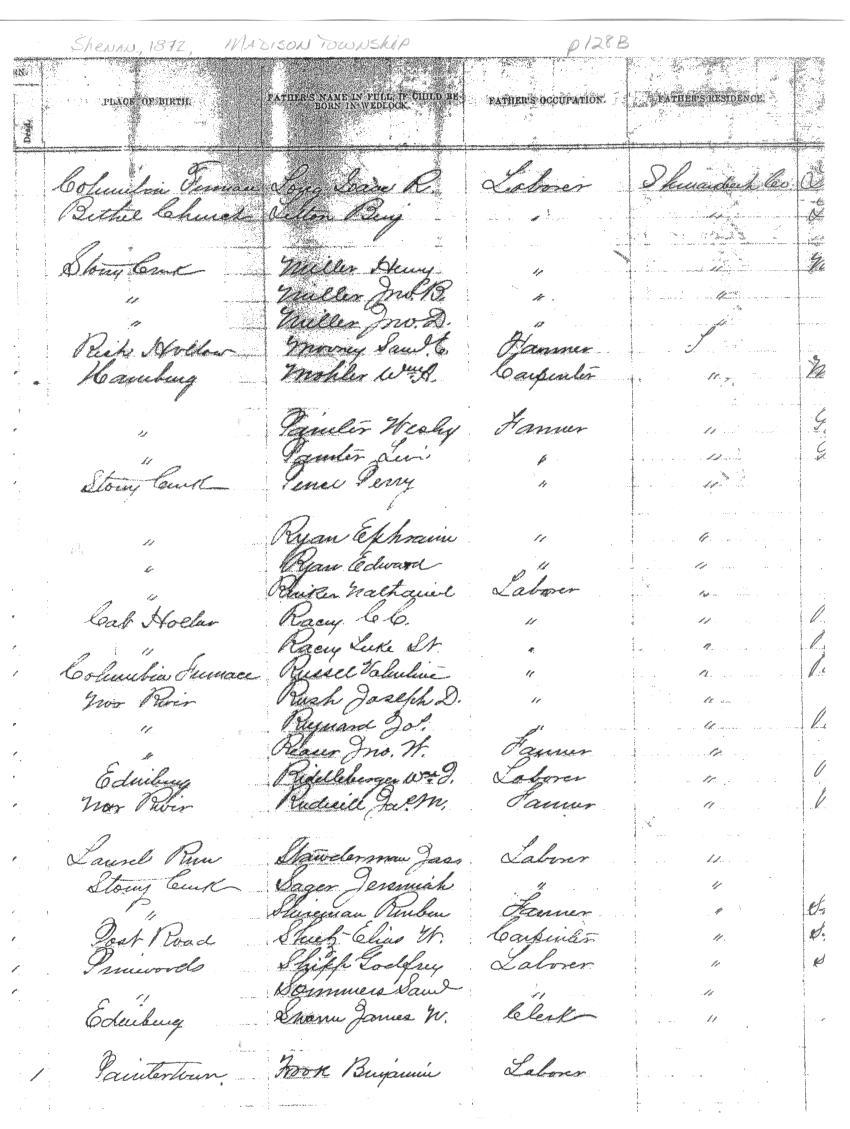 Shenan, 1872, Madison Township p128B
RN. PLACE OF BIRTH. FATHER'S NAME IN FULL, IF CHILD BE FATHER'S OCCUPATION. FATHER'S RESIDENCE.
Dead. BORN IN WEDLOCK.
Columbia Furnace Long Isaac R. Laborer Shenandoah Co
Bethel Church Litton Benj "  "
Stony Creek Miller Henry " "
" Miller Jno. B. " "
" Miller Jno. D. " "
Hollow Mooney Saml. E. Farmer
Hamburg Mohler Wm A. Carpenter "
" Painter Wesley Farmer "
" Painter Levi " "
Stony Creek Pence Perry " "
" Ryan Ephraim " "
" Ryan Edward " "
" Rinker Nathaniel Laborer "
Cab Hollar Racey C. C. " "
" Racey Luke St. " "
Columbia Furnace Russel Valentine " "
Nor River Rush Joseph D. " "
" Reynard Jos. " "
" Reaser Jno. W. Farmer "
Edinburg Ridelleberger Wm J. Laborer "
Nor River Rudisill M. Farmer "
Laurel Run Stawderman Jass Laborer "
Stony Creek Sager Jeremiah " "
" Reuben Farmer "
Post Road Elias W. Carpenter "
Pinewoods Shipp Godfrey Laborer "
" Sommers Saml " "
Edinburg James W. Clerk "
Paintertown. Benjamin Laborer